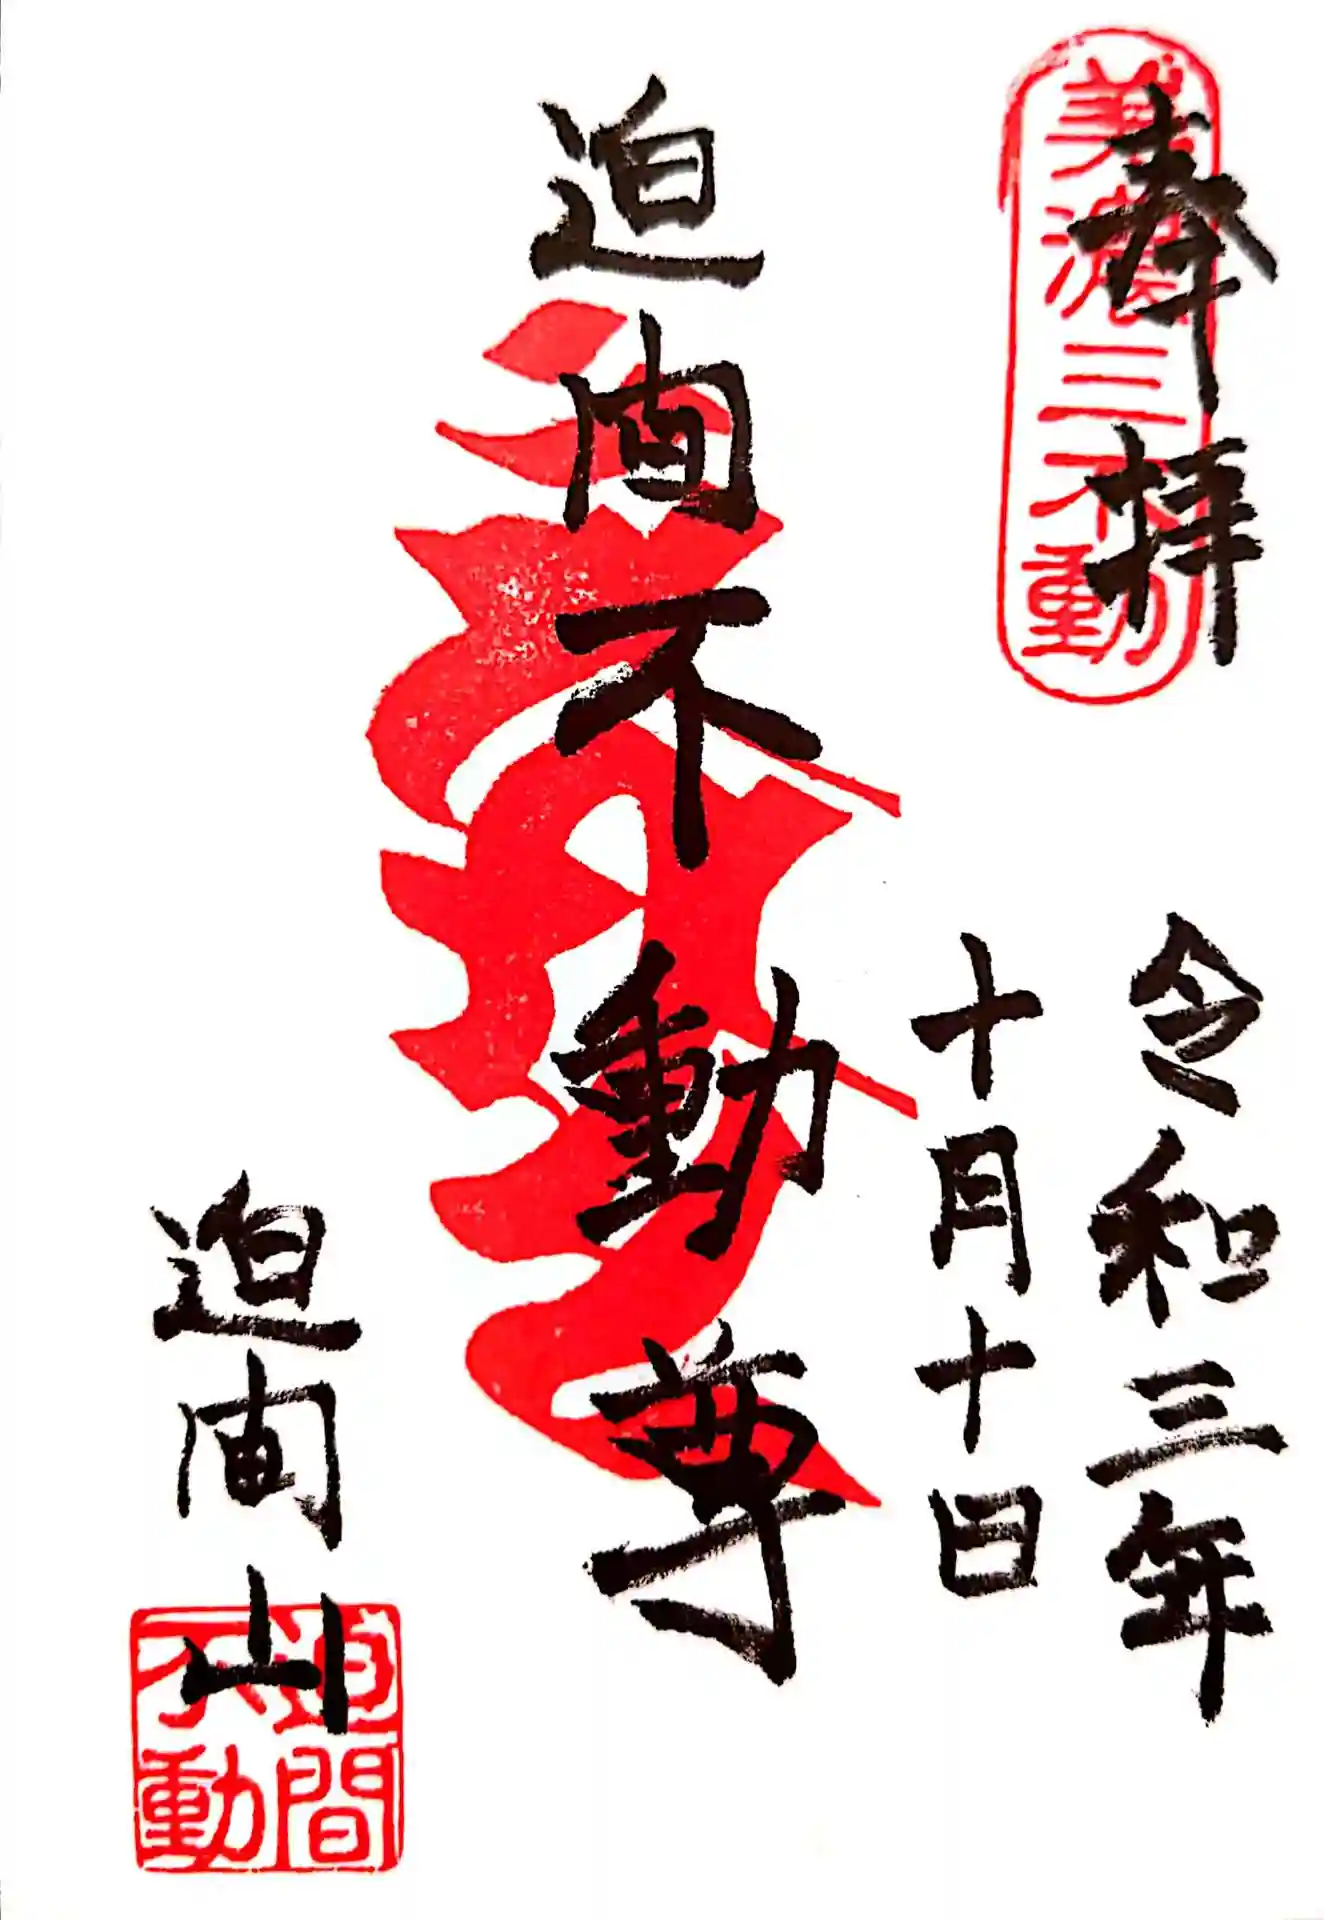 奉拝
美濃三不動
令和三年
十月十日
迫間不動尊
迫間山
迫間
不動